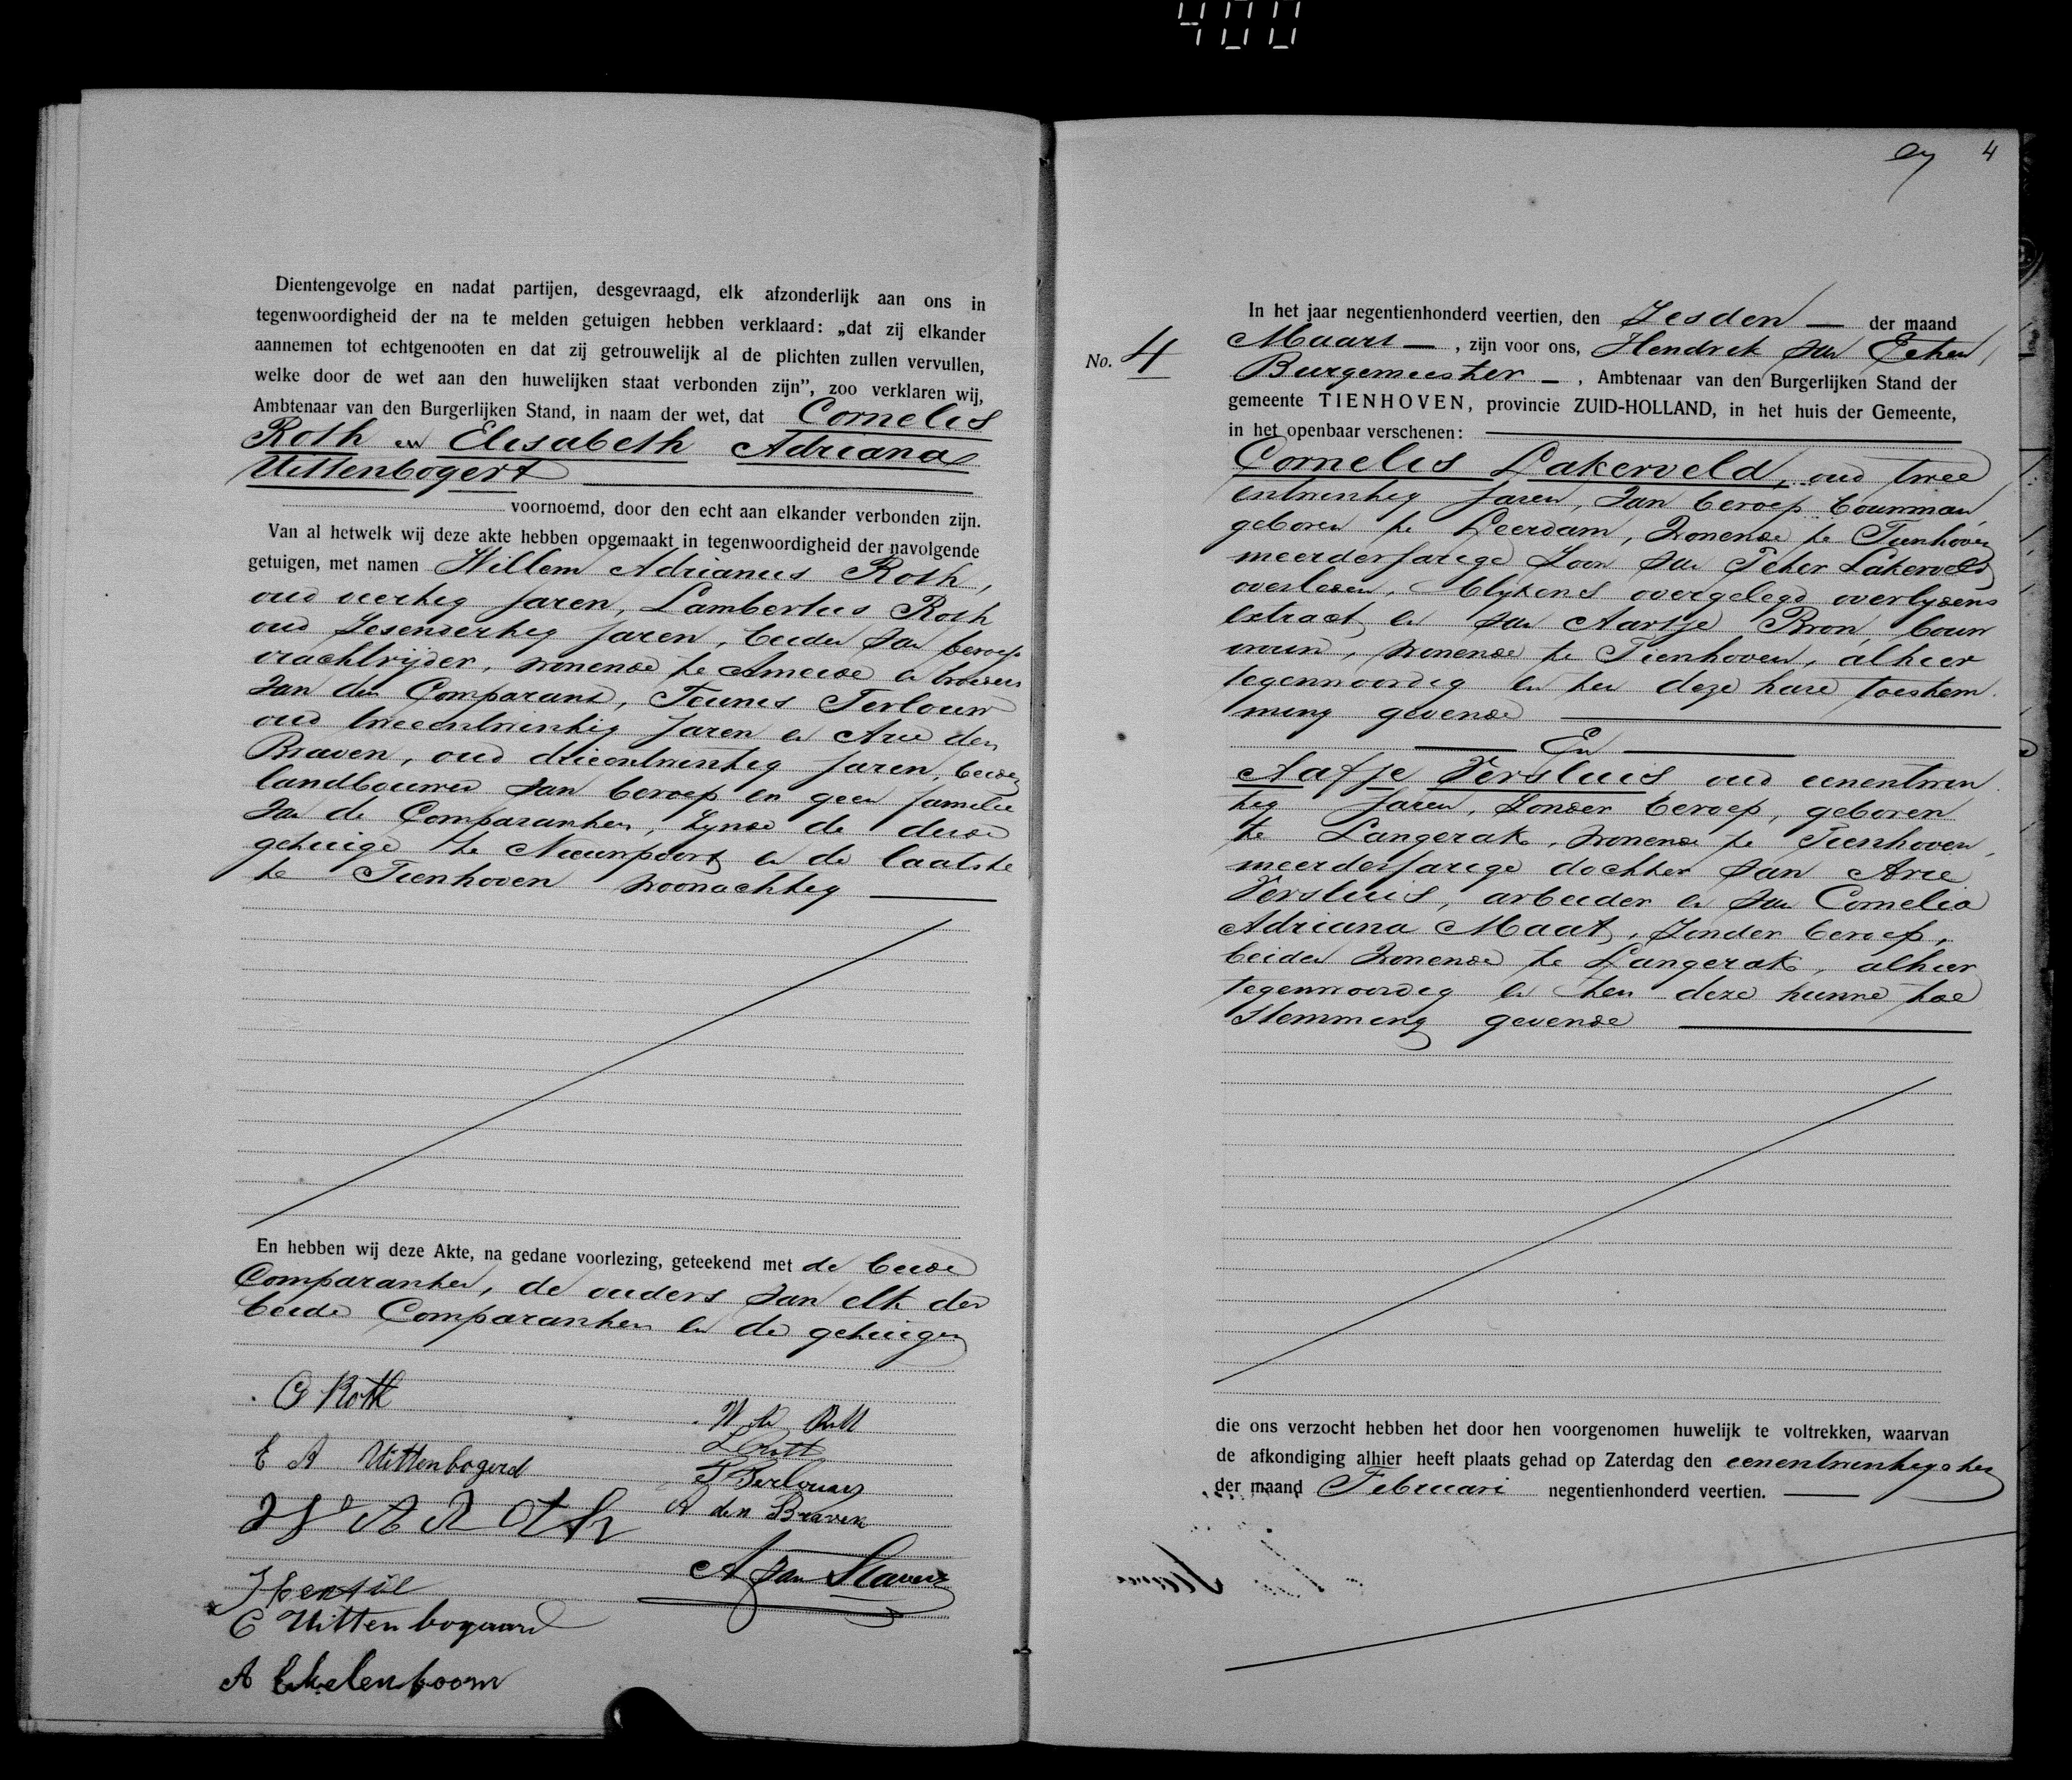 400
Dientengevolge en nadat partijen, desgevraagd, elk afzonderlijk aan ons in
tegenwoordigheid der na te melden getuigen hebben verklaard: „dat zij elkander
aannemen tot echtgenooten en dat zij getrouwelijk al de plichten zullen vervullen,
welke door de wet aan den huwelijken staat verbonden zijn”, zoo verklaren wij,
Ambtenaar van den Burgerlijken Stand, in naam der wet, dat Cornelis
Roth en Elisabeth Adriana
Uittenbogert
voornoemd, door den echt aan elkander verbonden zijn.
Van al hetwelk wij deze akte hebben opgemaakt in tegenwoordigheid der navolgende
getuigen, met namen Willem Adrianus Roth,
oud veertig jaren, Lambertus Roth
oud zesendertig jaren, beiden van beroep
vrachtrijder, wonende te Ameide en broeders
van den Comparant, Teunis Terlouw
oud tweeentwintig jaren en Arie den
Braven, oud drieentwintig jaren, beiden
landbouwer van beroep en geen familie
van de Comparanten, zijnde de derde
getuige te Nieuwpoort en de laatste
te Tienhoven woonachtig
En hebben wij deze Akte, na gedane voorlezing, geteekend met de beide
Comparanten, de ouders van elk der
beide Comparanten en de getuigen
C Roth
E A Uittenbogerd
A Roth
C Uittenbogaard
A Ekelenboom
W A Roth
L Roth
T Terlouw
A den Braven
A van Staveren
4
No. 4
In het jaar negentienhonderd veertien, den Zesden der maand
Maart, zijn voor ons, Hendrik van Eeten
Burgemeester, Ambtenaar van den Burgerlijken Stand der
gemeente TIENHOVEN, provincie ZUID-HOLLAND, in het huis der Gemeente,
in het openbaar verschenen:
Cornelis Lakerveld, oud twee
entwintig jaren, van beroep bouwman,
geboren te Leerdam, wonende te Tienhoven
meerderjarige zoon van Peter Lakerveld
overleden, blijkens overgelegd overlijdens
extract en van Aartje Bron, bouw
vrouw, wonende te Tienhoven, alhier
tegenwoordig en ten deze hare toestem
ming gevende
En
Aafje Versluis oud eenentwin
tig jaren, zonder beroep, geboren
te Langerak, wonende te Tienhoven,
meerderjarige dochter van Arie
Versluis, arbeider en van Cornelia
Adriana Maat, zonder beroep,
beiden wonende te Langerak, alhier
tegenwoordig en ten deze hunne toe
stemming gevende
die ons verzocht hebben het door hen voorgenomen huwelijk te voltrekken, waarvan
de afkondiging alhier heeft plaats gehad op Zaterdag den eenentwintigsten
der maand Februari negentienhonderd veertien.